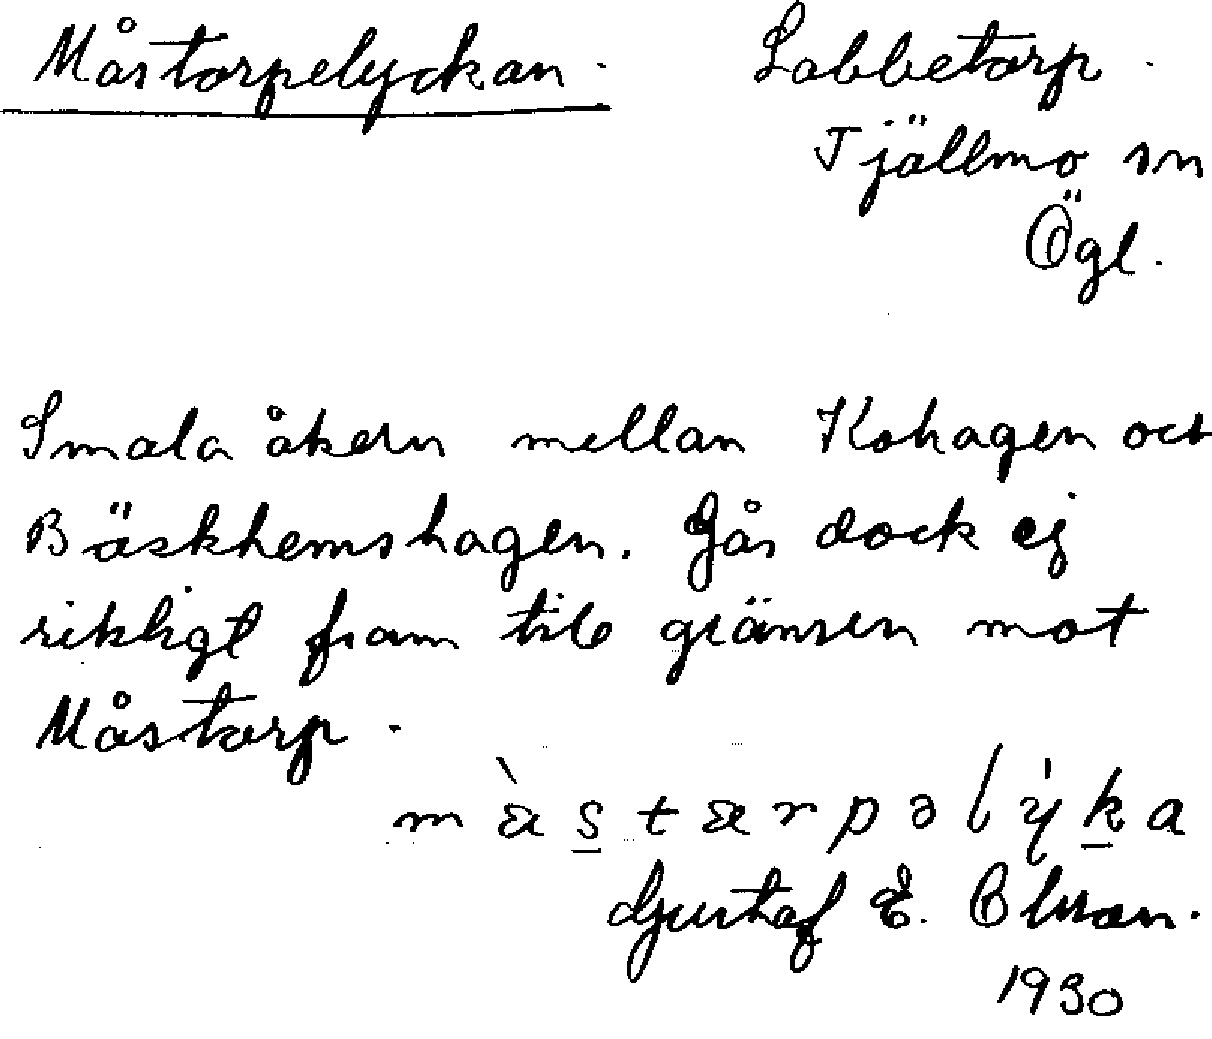 Måstorpelyckan. Lobbetorp.
Tjällmo sn
Ögl.
Smala åkern mellan Kohagen och
Bäskhemshagen. Går dock ej
riktigt fram till gränsen mot
Måstorp.
Gustaf E. Olsson.
1930